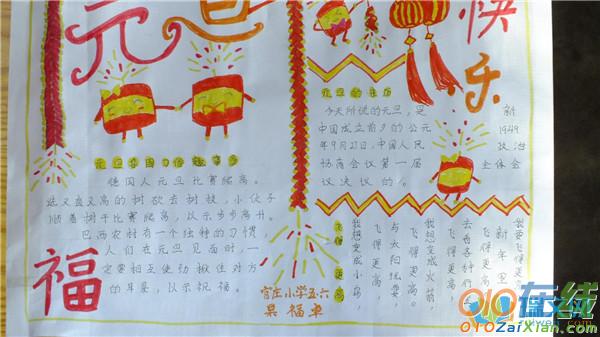 元旦
快乐
元旦各国习俗趣事多
德国人元旦比赛爬高。
选又直又高的树砍去树枝,小伙子
顺着树干比赛爬高,以示步步高升。
巴西农村有一个独特的习惯,
人们在元旦见面时,一
定要相互使劲揪住对方
的耳朵,以示祝福。
福
官庄小学五六
元旦的来历
今天所说的元旦,是新
中国成立前夕的公元1949
年9月27日,中国人民政治
协商会议第一届全体会
议决议的。
飞得更高
我要飞得更高,
新年里
飞得更高,
去看各种行星
我想变成火箭,
飞得更高。
与太阳玩耍,
飞得更高,
我想变成小鸟,
OTOZAiXian.Com